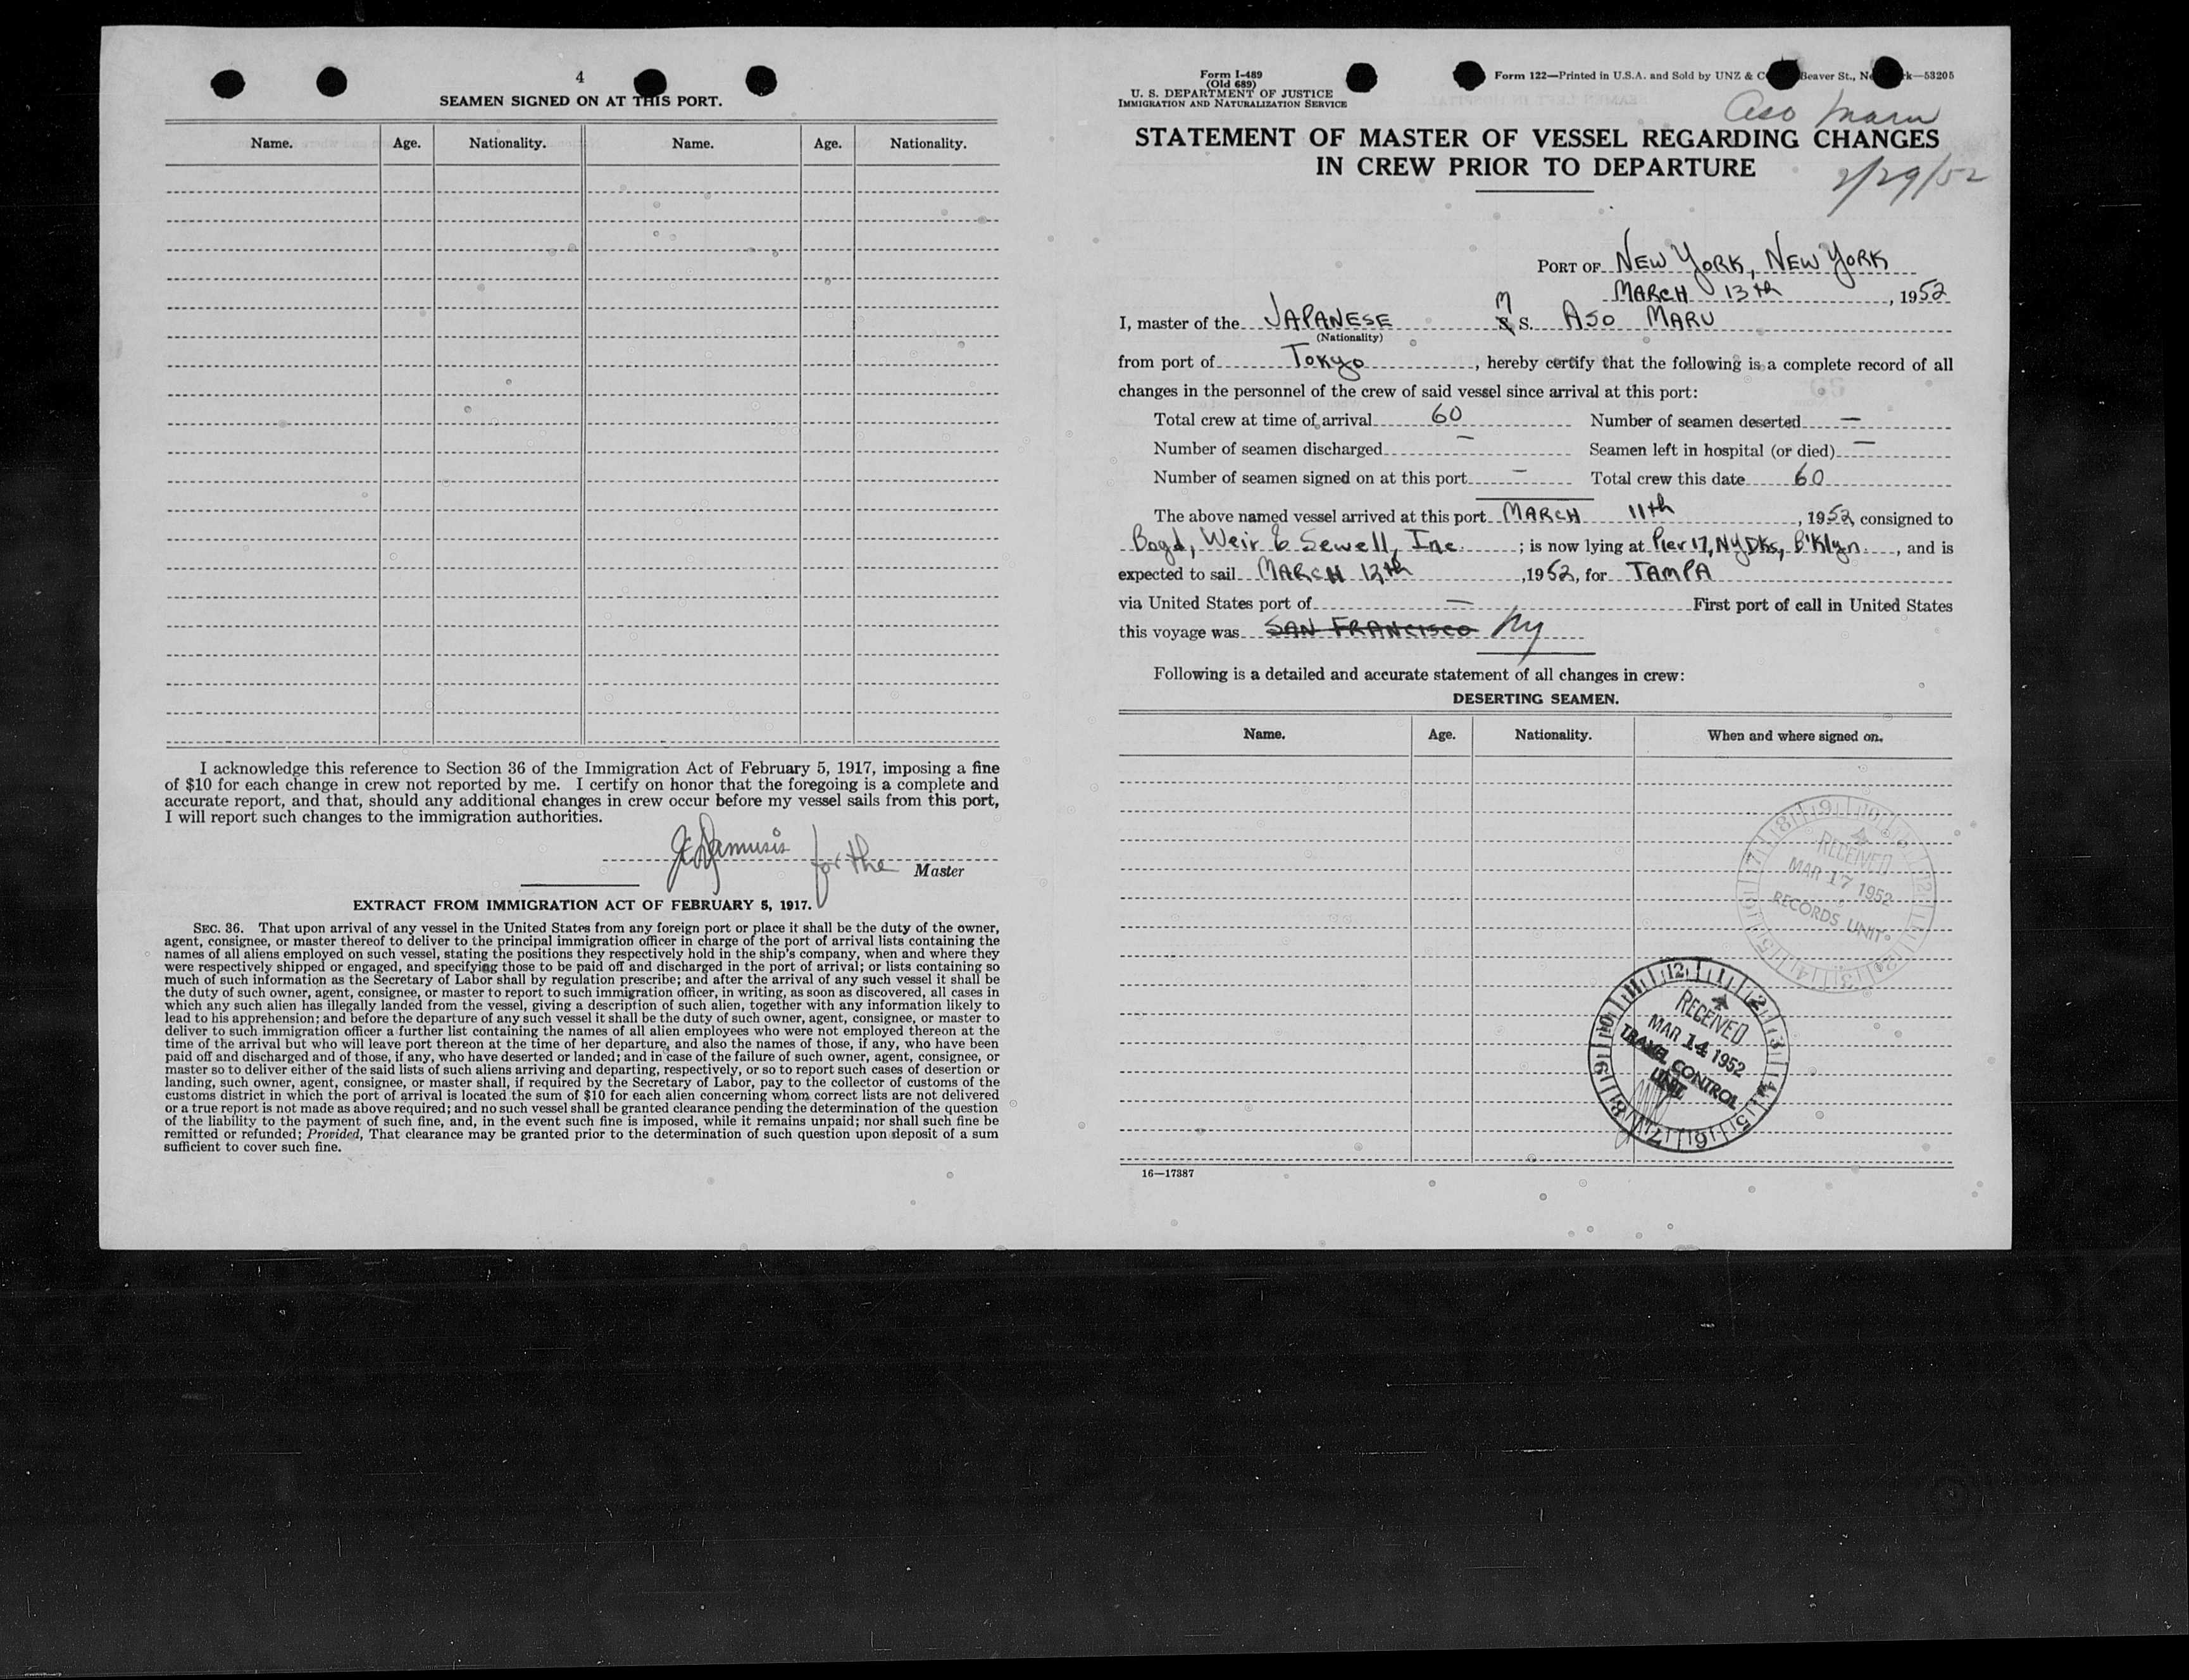 4
SEAMEN SIGNED ON AT THIS PORT.
Name. Age. Nationality. Name. Age. Nationality.
I acknowledge this reference to Section 36 of the Immigration Act of February 5, 1917, imposing a fine
of $10 for each change in crew not reported by me. I certify on honor that the foregoing is a complete and
accurate report, and that, should any additional changes in crew occur before my vessel sails from this port,
I will report such changes to the immigration authorities.
for the Master
EXTRACT FROM IMMIGRATION ACT OF FEBRUARY 5, 1917.
SEC. 36. That upon arrival of any vessel in the United States from any foreign port or place it shall be the duty of the owner,
agent, consignee, or master thereof to deliver to the principal immigration officer in charge of the port of arrival lists containing the
names of all aliens employed on such vessel, stating the positions they respectively hold in the ship's company, when and where they
were respectively shipped or engaged, and specifying those to be paid off and discharged in the port of arrival; or lists containing so
much of such information as the Secretary of Labor shall by regulation prescribe; and after the arrival of any such vessel it shall be
the duty of such owner, agent, consignee, or master to report to such immigration officer, in writing, as soon as discovered, all cases in
which any such alien has illegally landed from the vessel, giving a description of such alien, together with any information likely to
lead to his apprehension; and before the departure of any such vessel it shall be the duty of such owner, agent, consignee, or master to
deliver to such immigration officer a further list containing the names of all alien employees who were not employed thereon at the
time of the arrival but who will leave port thereon at the time of her departure, and also the names of those, if any, who have been
paid off and discharged and of those, if any, who have deserted or landed; and in case of the failure of such owner, agent, consignee, or
master so to deliver either of the said lists of such aliens arriving and departing, respectively, or so to report such cases of desertion or
landing, such owner, agent, consignee, or master shall, if required by the Secretary of Labor, pay to the collector of customs of the
customs district in which the port of arrival is located the sum of $10 for each alien concerning whom correct lists are not delivered
or a true report is not made as above required; and no such vessel shall be granted clearance pending the determination of the question
of the liability to the payment of such fine, and, in the event such fine is imposed, while it remains unpaid; nor shall such fine be
remitted or refunded; Provided, That clearance may be granted prior to the determination of such question upon deposit of a sum
sufficient to cover such fine.
Form I-489
(Old 689)
U. S. DEPARTMENT OF JUSTICE
IMMIGRATION AND NATURALIZATION SERVICE
Form 122—Printed in U.S.A. and Sold by UNZ & C Beaver St., Ne rk—53205
Aso Maru
STATEMENT OF MASTER OF VESSEL REGARDING CHANGES
IN CREW PRIOR TO DEPARTURE
2/29/52
PORT OF NEW YORK, NEW YORK
MARCH 13th, 1952
I, master of the JAPANESE M S. ASO MARU
(Nationality)
from port of Tokyo, hereby certify that the following is a complete record of all
changes in the personnel of the crew of said vessel since arrival at this port:
Total crew at time of arrival 60 Number of seamen deserted —
Number of seamen discharged — Seamen left in hospital (or died) —
Number of seamen signed on at this port — Total crew this date 60
The above named vessel arrived at this port MARCH 11th, 1952, consigned to
Bogd, Weir & Sewell, Inc. ; is now lying at Pier 17, NY Dks, B'Klyn., and is
expected to sail MARCH 12th, 1952, for TAMPA
via United States port of — First port of call in United States
this voyage was SAN FRANCISCO NY
Following is a detailed and accurate statement of all changes in crew:
DESERTING SEAMEN.
Name. Age. Nationality. When and where signed on.
RECEIVED
MAR 17 1952
RECORDS UNIT
RECEIVED
MAR 14 1952
TRAVEL CONTROL
UNIT
16—17387